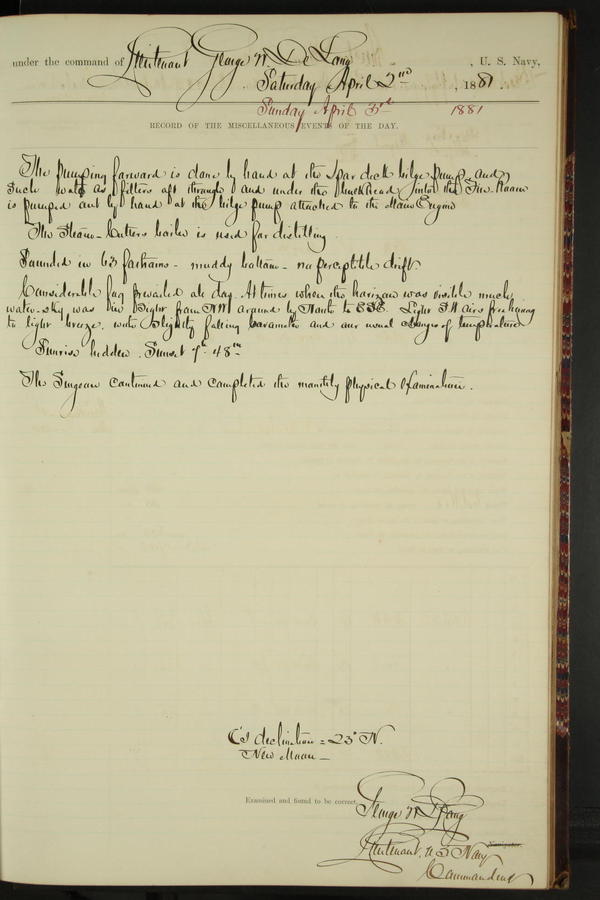 under the command of Lieutenant George W. De Long, U. S. Navy,
Saturday April 2nd, 1881.
Sunday April 3rd 1881
RECORD OF THE MISCELLANEOUS EVENTS OF THE DAY.
The pumping forward is done by hand at the spar deck bilge pump, and
such water as filters aft through and under the bulkhead into the Fire-Room
is pumped out by hand at the bilge pump attached to the Main Engine
The Steam-Cutters boiler is used for distilling.
Sounded in 63 fathoms - muddy bottom - no perceptible drift
Considerable fog prevailed all day. At times when the horizon was visible much
water-sky was in sight from NW around by North to ESE. Light airs freshening
to light breeze, with slightly falling barometer and our usual range of temperature
Sunrise hidden. Sunset 7h 48m
The Surgeon continued and completed the monthly physical examination.
☾'s declination = 23° N.
New Moon -
Examined and found to be correct.
George W. De Long
Lieutenant, U S Navy
Navigator.
Commanding